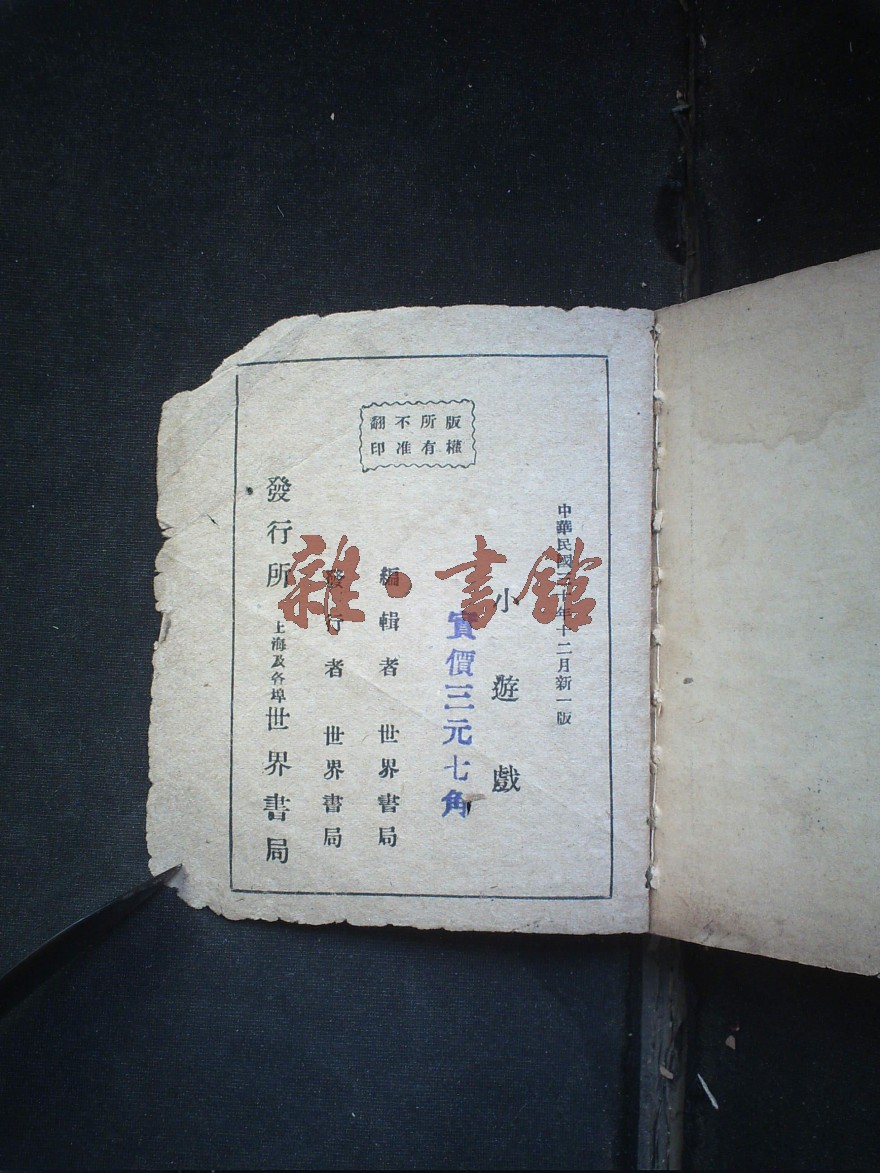 版權
所有
不准
翻印
中華民國三十年十二月新一版
小遊戲
實價三元七角
編輯者 世界書局
發行者 世界書局
發行所 上海及各埠世界書局
雜·書館